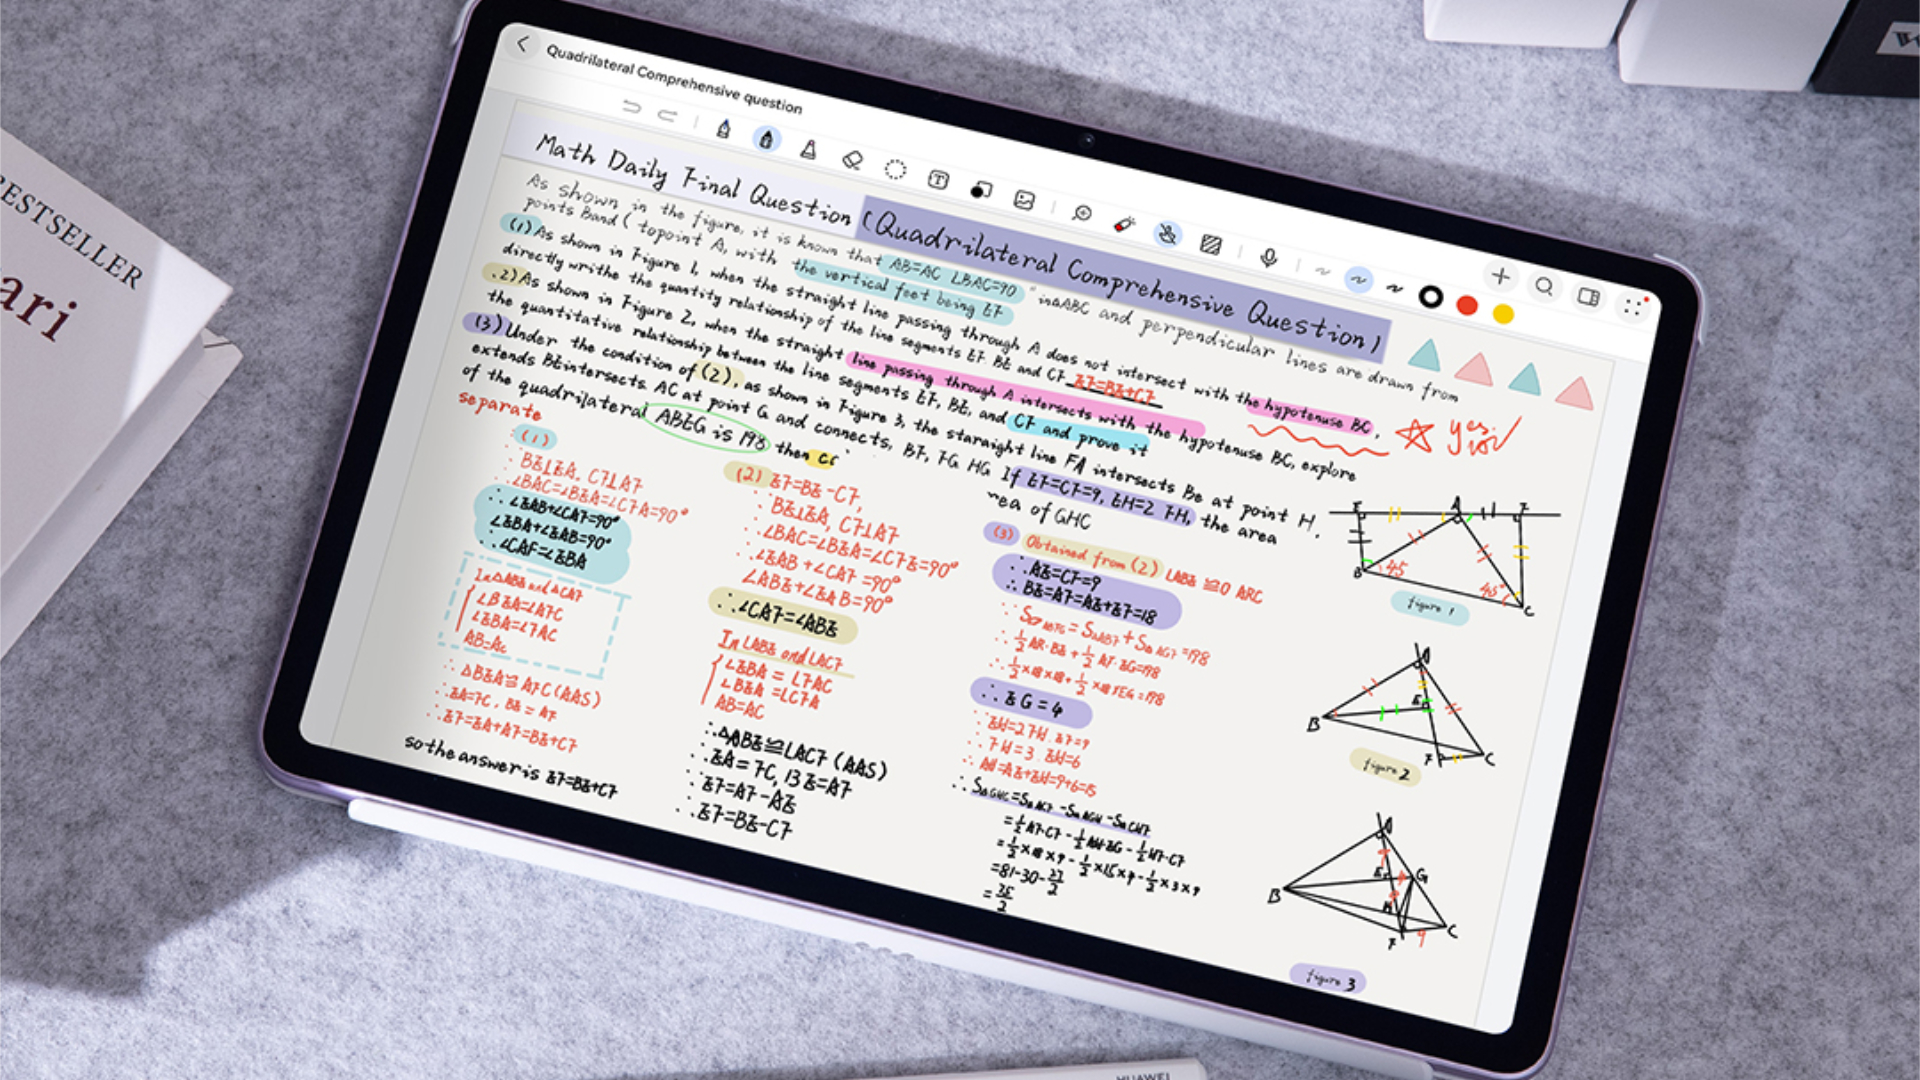 Quadrilateral Comprehensive question
Math Daily Final Question (Quadrilateral Comprehensive Question)
As shown in the figure, it is known that AB=AC ∠BAC=90° in△ABC and perpendicular lines are drawn from
points B and C to point A, with the vertical feet being EF
(1) As shown in Figure 1, when the straight line passing through A does not intersect with the hypotenuse BC,
directly writhe the quantity relationship of the line segments EF BE and CF EF=BE+CF
.2) As shown in Figure 2, when the straight line passing through A intersects with the hypotenuse BC, explore
the quantitative relationship between the line segments EF, BE, and CF and prove it
(3) Under the condition of (2), as shown in Figure 3, the staraight line FA intersects Be at point H.
extends BE intersects AC at point G and connects, BF, FG HG If EF=CF=9, EH=2 FH, the area
of the quadrilateral ABEG is 198 then
ea of GHC
separate
yes
(1)
∵BE⊥EA, CF⊥AF
∴∠BAC=∠BEA=∠CFA=90°
∴∠EAB+∠CAF=90°
∠EBA+∠EAB=90°
∴∠CAF=∠EBA
In△ABE and △CAF
∠BEA=∠AFC
∠EBA=∠FAC
AB=Ac
∴△BEA≌AFC(AAS)
∴EA=FC, BE=AF
∴EF=EA+AF=BE+CF
so the answer is EF=BE+CF
(2) EF=BE-CF,
∵BE⊥EA, CF⊥AF
∴∠BAC=∠BEA=∠CFE=90°
∴∠EAB+∠CAF=90°
∠ABE+∠EAB=90°
∴∠CAF=∠ABE
In ∠ABE and ∠ACF
∠EBA=∠FAC
∠BEA=∠CFA
AB=AC
∴△ABE≌∠ACF(AAS)
∴EA=FC, BE=AF
∴EF=AF-AE
∴EF=BE-CF
(3) Obtained from (2)
∴AE=CF=9
∴BE=AF=AE+EF=18
∴EG=4
∵EH=2FH EF=9
∴FH=3 EH=6
∴AH=AE+EH=9+6=15
=81-30-27/2
=75/2
E A F
B 45 45° C
figure 1
A
B E
F C
figure 2
A
B E G
H C
F 9
figure 3
ESTSELLER
ari
HUAWEI